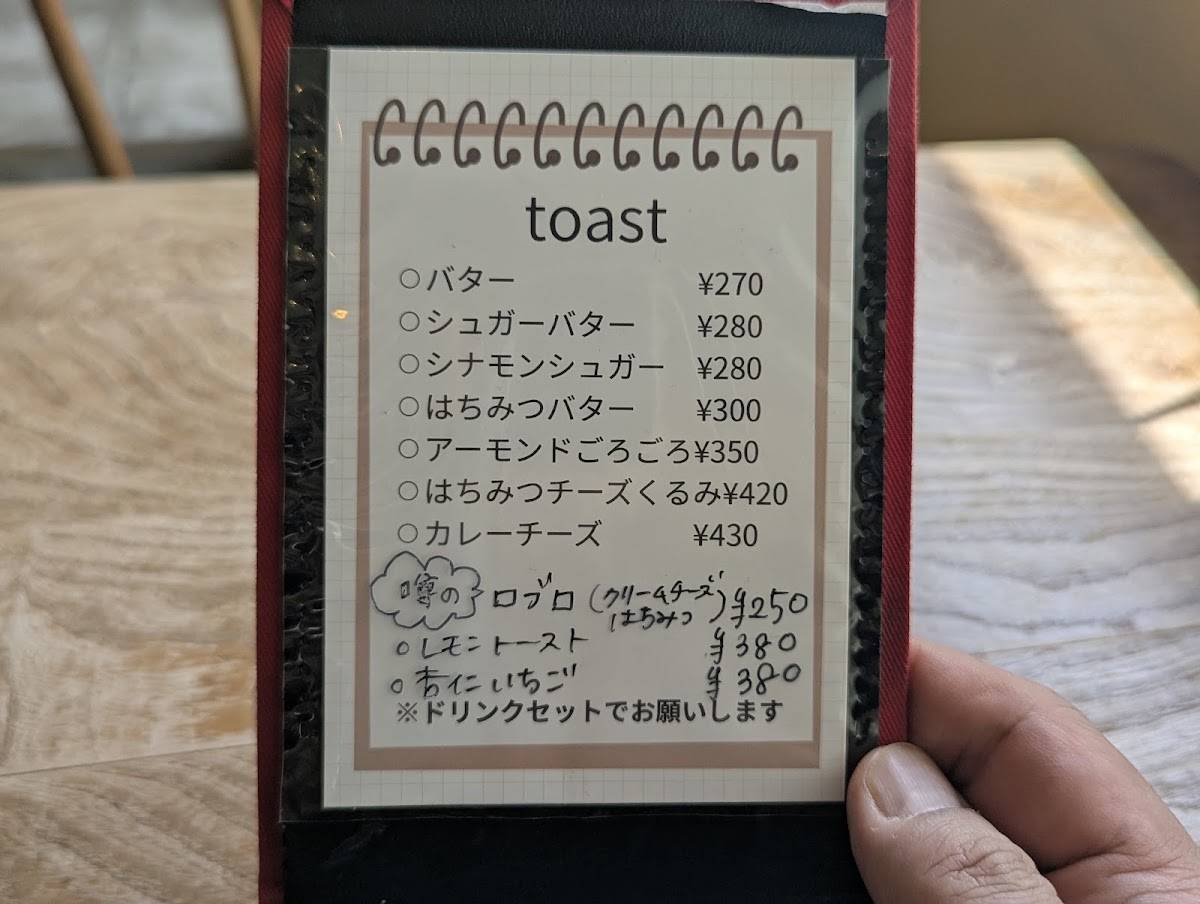 toast
○バター ¥270
○シュガーバター ¥280
○シナモンシュガー ¥280
○はちみつバター ¥300
○アーモンドごろごろ¥350
○はちみつチーズくるみ¥420
○カレーチーズ ¥430
噂の ロブロ (クリームチーズ はちみつ) ¥250
○レモントースト ¥380
○杏仁いちご ¥380
※ドリンクセットでお願いします